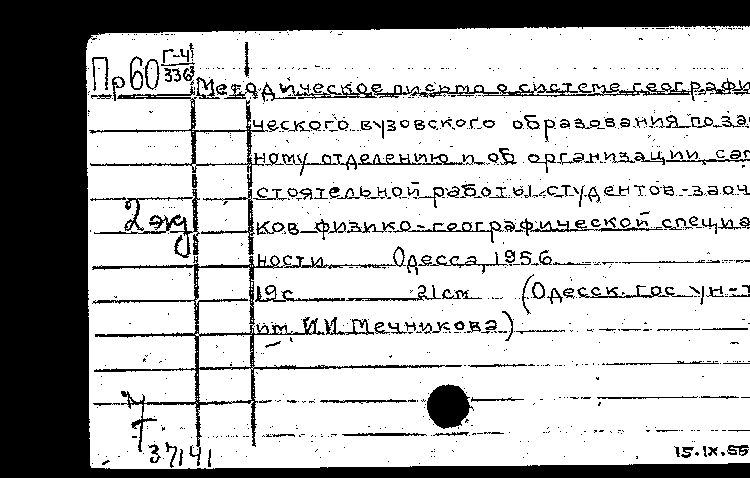 Пр60 Г-4/336 Методическое письмо о системе географи
ческого вузовского образования по зао
ному отделению и об организации сам
стоятельной работы студентов-заоч
ков физико-географической специа
2 экз
ности Одесса, 1956.
19с 21см (Одесск. гос ун-т
им И.И Мечникова)
37141
15.IX.56